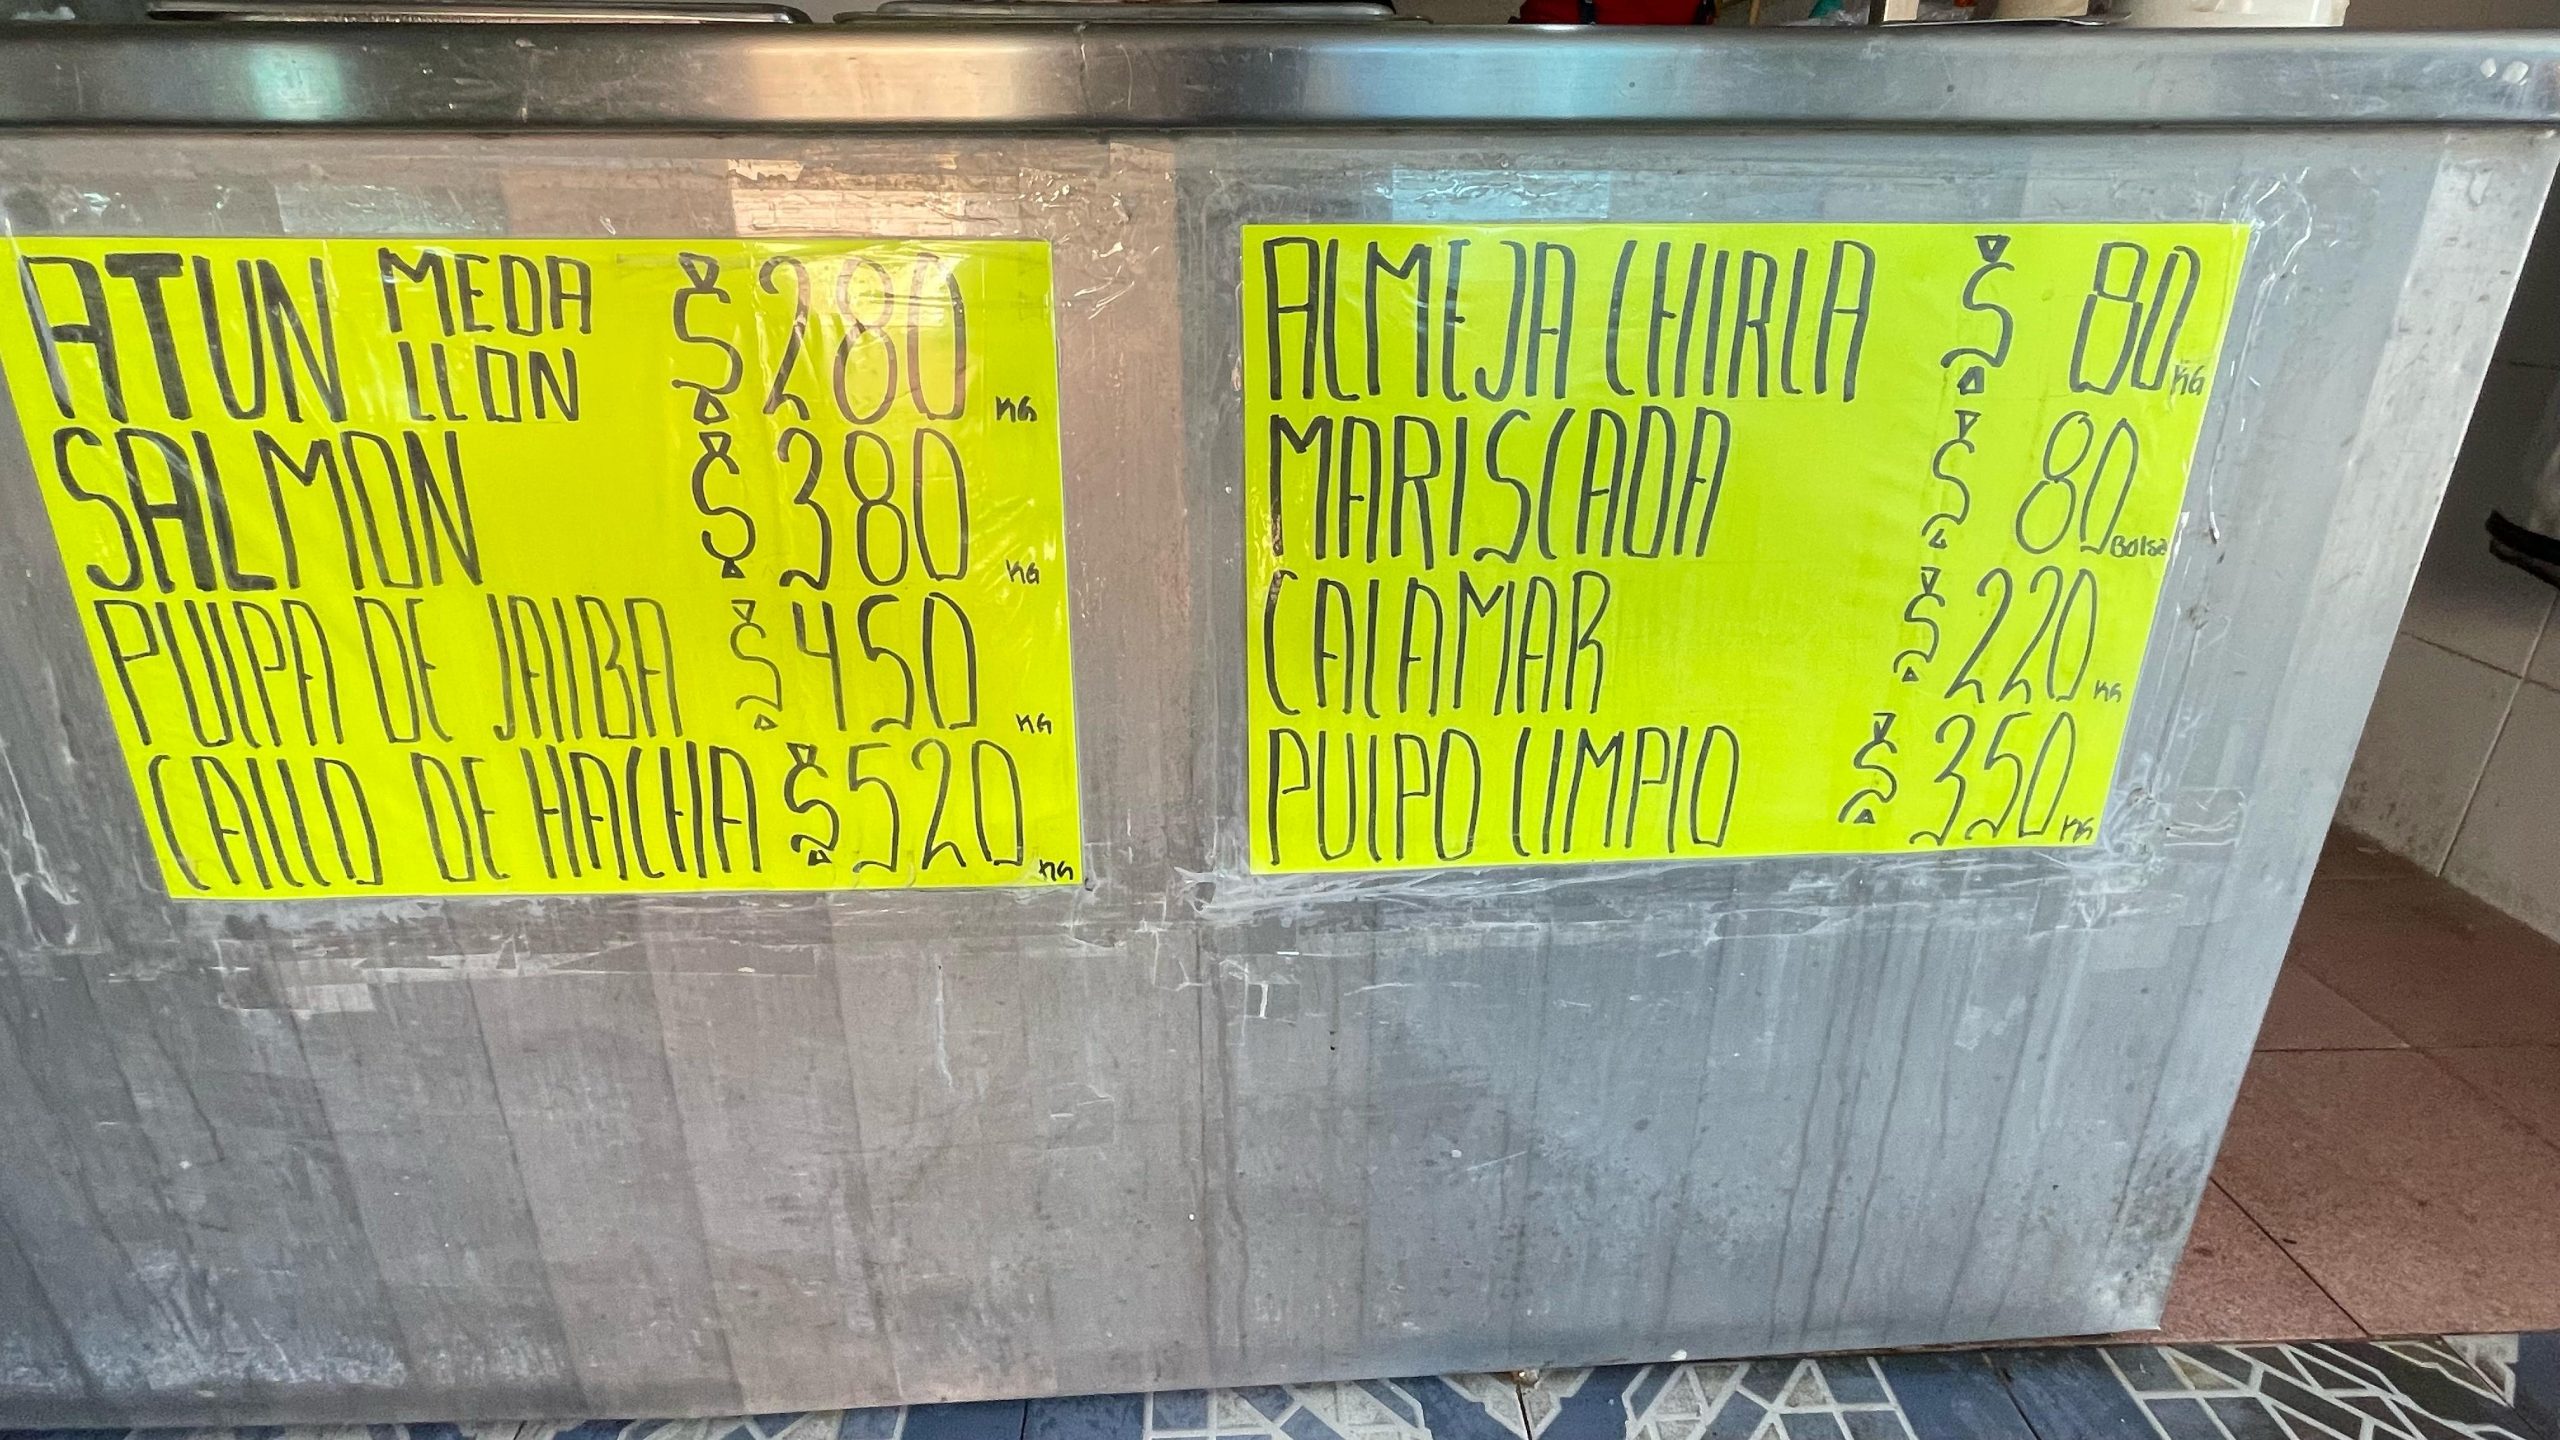 ATUN MEDA LLON $ 280 KG
SALMON $ 380 KG
PULPA DE JAIBA $ 450 KG
CALLO DE HACHA $ 520 KG
ALMEJA CHIRLA $ 80 KG
MARISCADA $ 80 Bolsa
CALAMAR $ 220 KG
PULPO LIMPIO $ 350 KG